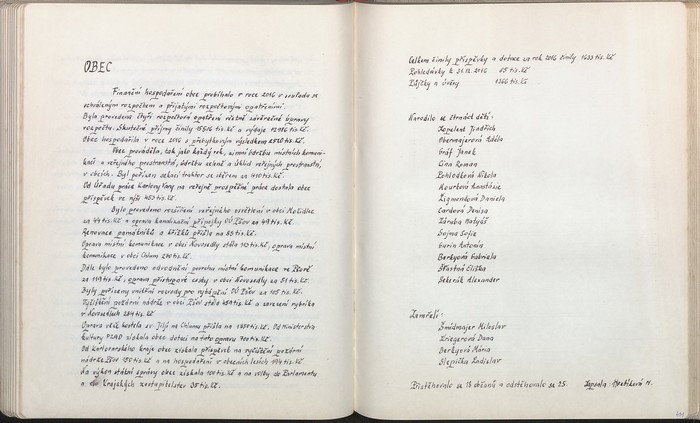 OBEC
Finanční hospodaření obce probíhalo v roce 2016 v souladu se
schváleným rozpočtem a přijatými rozpočtovými opatřeními.
Bylo provedeno čtyři rozpočtová opatření včetně závěrečné úpravy
rozpočtu. Skutečné příjmy činily 15516 tis. Kč a výdaje 12996 tis. Kč.
Obec hospodařila v roce 2016 s přebytkovým výsledkem 2520 tis. Kč.
Obec prováděla, tak jako každý rok, zimní údržbu místních komuni-
kací a veřejného prostranství, údržbu zeleně a úklid veřejných prostranství,
v obcích. Byl pořízen sekací traktor se sběrem za 110 tis. Kč.
Od Úřadu práce Karlovy Vary na veřejně prospěšné práce dostala obec
příspěvek ve výši 453 tis. Kč.
Bylo provedeno rozšíření veřejného osvětlení v obci Močidlec
za 44 tis. Kč a oprava kanalizační přípojky OÚ Pšov za 49 tis. Kč.
Renovace památníků a křížků přišla na 85 tis. Kč.
Oprava místní komunikace v obci Novosedly stála 113 tis. Kč, oprava místní
komunikace v obci Chlum 270 tis. Kč.
Dále bylo provedeno odvodnění povrchu místní komunikace ve Pšově
za 119 tis. Kč, oprava přístupové cesty v obci Novosedly za 51 tis. Kč.
Byly pořízeny vnitřní rozvody pro vytápění OÚ Pšov za 105 tis. Kč.
Vyčištění požární nádrže v obci Pšov stálo 459 tis. Kč a zarazení rybníka
v Kovaslicích 284 tis. Kč
Oprava věže kostela sv. Jiljí na Chlumu přišla na 1350 tis. Kč. Od Ministerstva
kultury PZAD získala obec dotaci na tuto opravu 700 tis. Kč.
Od Karlovarského kraje obec získala příspěvek na vyčištění požární
nádrže Pšov 150 tis. Kč a na hospodaření v obecních lesích 194 tis. Kč
Na výkon státní správy obec získala 100 tis. Kč a na volby do Parlamentu
a do Krajských zastupitelstev 35 tis. Kč.
Celkem činily příspěvky a dotace za rok 2016 činily 1633 tis. Kč
Pohledávky k 31.12.2016 65 tis. Kč
Půjčky a úvěry 1366 tis. Kč
Narodilo se čtrnáct dětí:
Kopelent Jindřich
Obermajerová Adéla
Gráf Janek
Gina Roman
Pohlodková Nikola
Kourková Anastázie
Zigmondová Daniela
Cardová Denisa
Záruba Matyáš
Sojma Sofie
Gurin Antonín
Berkyová Gabriela
Šťastná Eliška
Sekerák Alexander
Zemřeli:
Šmídmajer Miloslav
Kriegerová Dana
Berkyová Mária
Slepička Ladislav
Přistěhovalo se 18 občanů a odstěhovalo se 25. Zapsala: M.